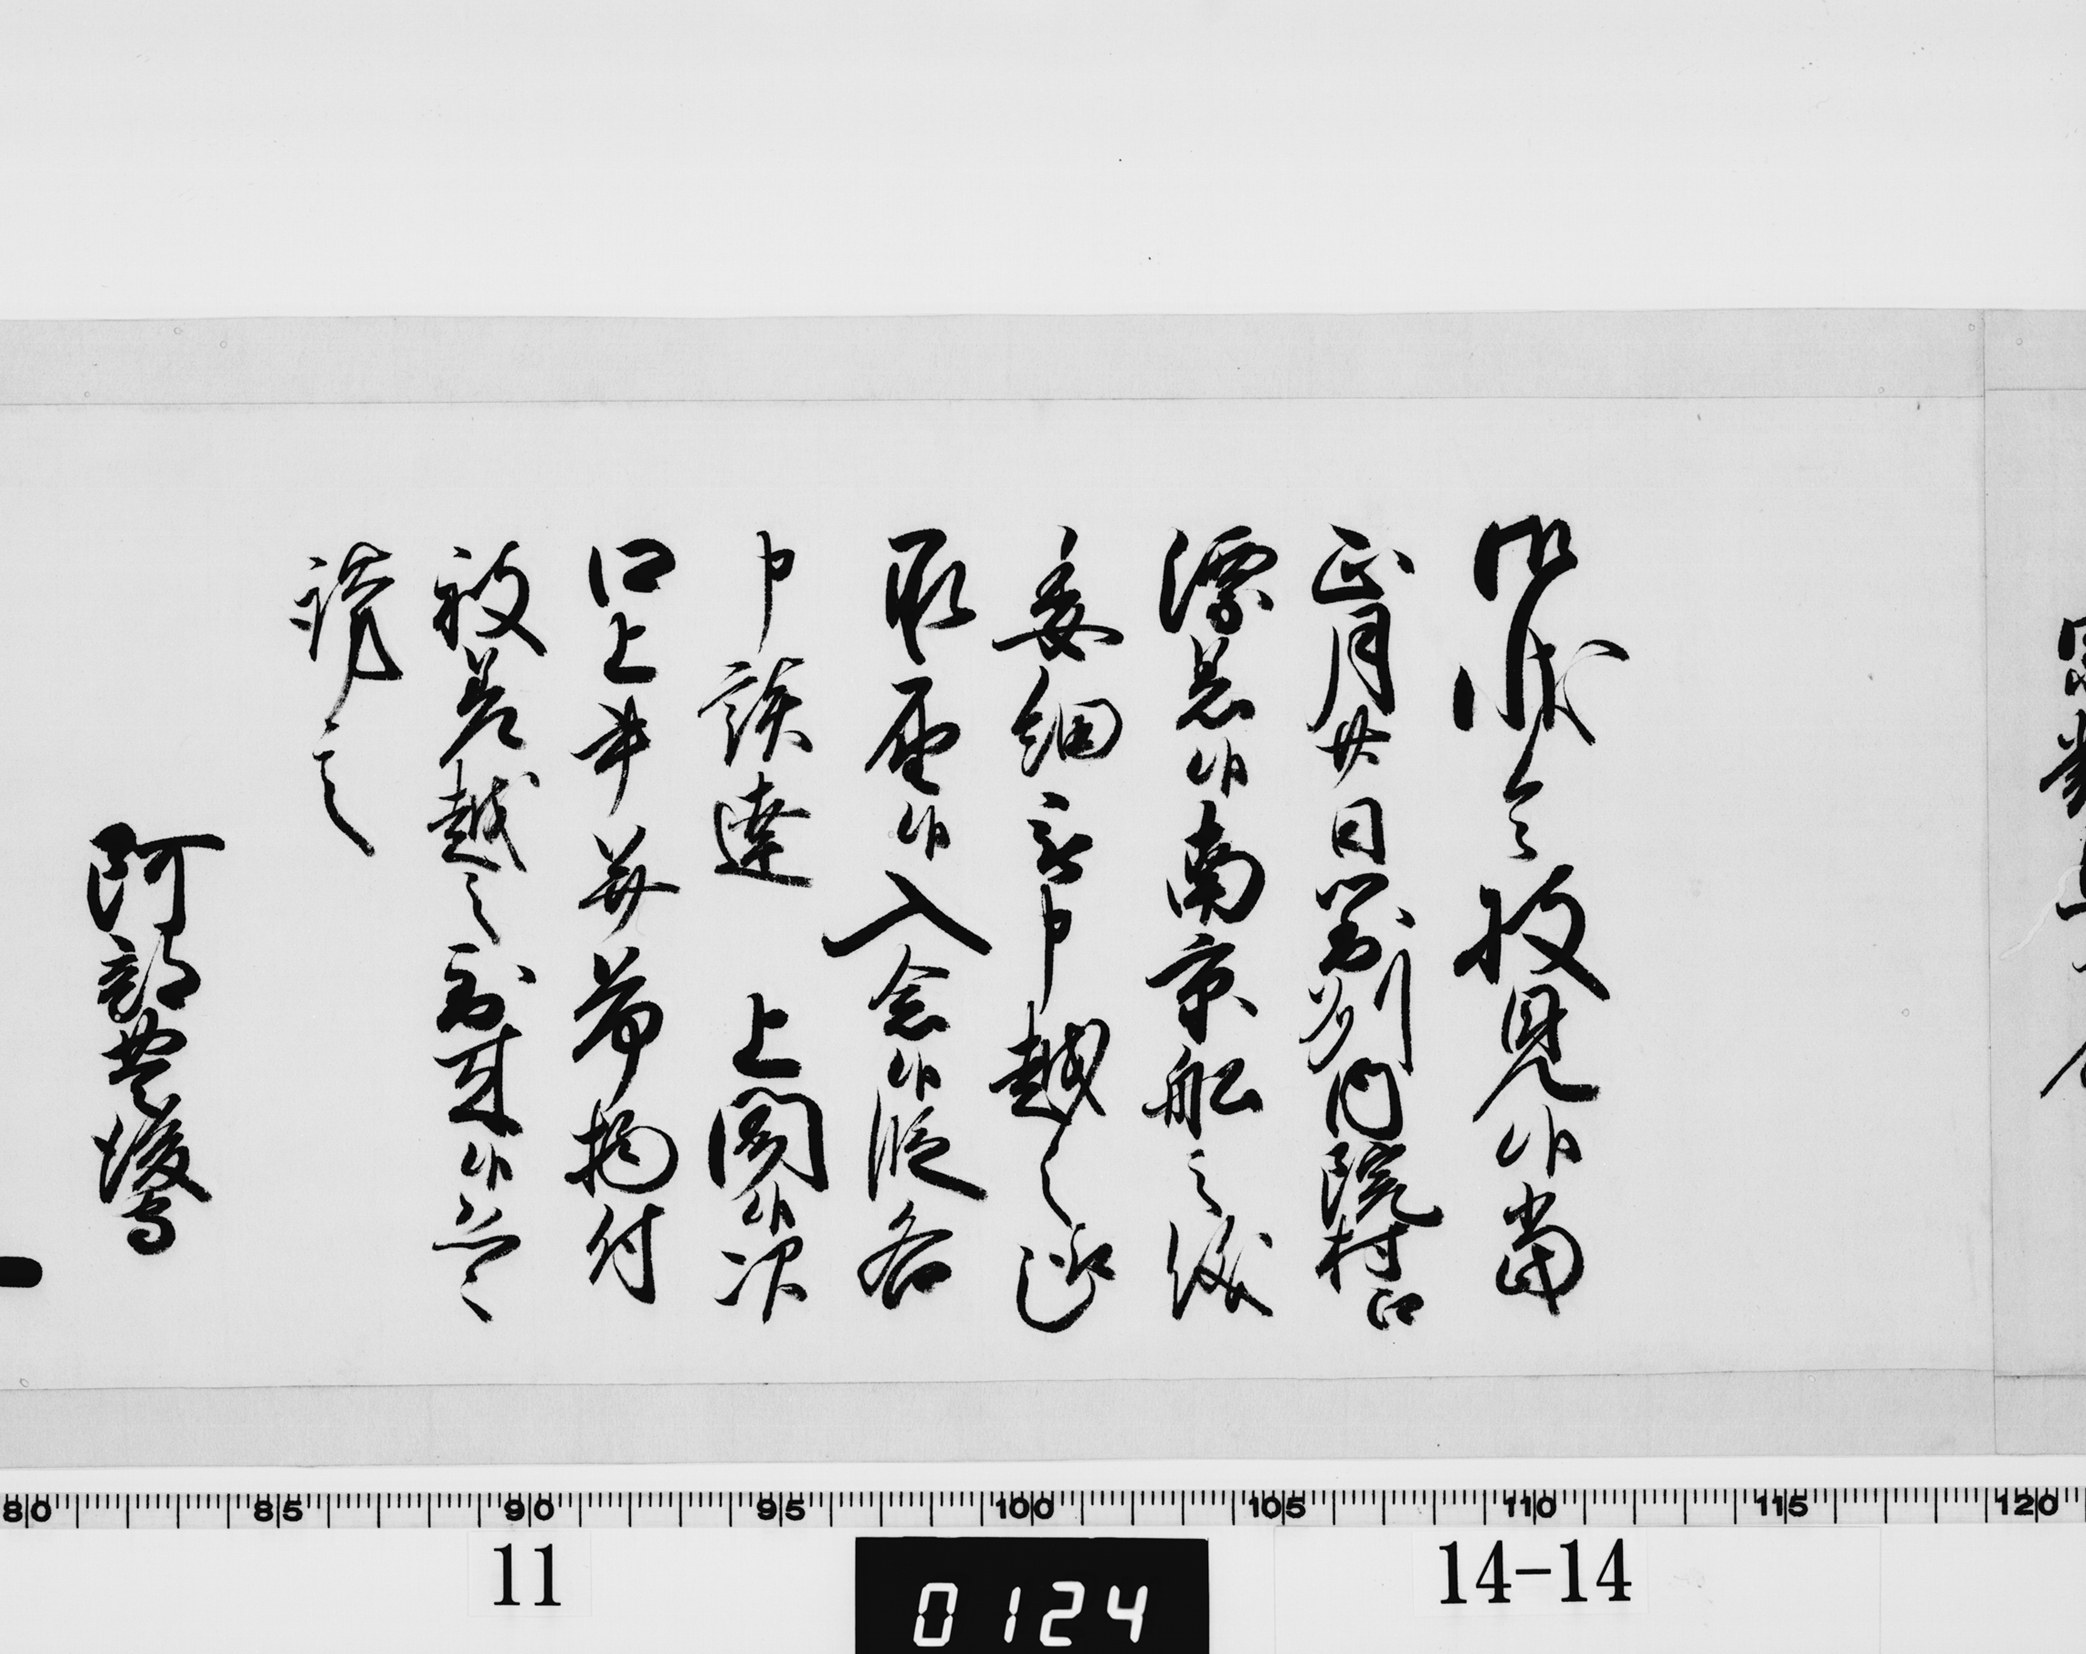 御状令披見候当
正月廿日對州内院村江
漂着候南京船之儀
委細被申越之通
承届候入念候段各
申談達 上聞候次
口上書并荷物付
被差越之到来候恐々
謹言
阿部豊後守
80 85 90 95 100 105 110 115 120
11
0124
14-14